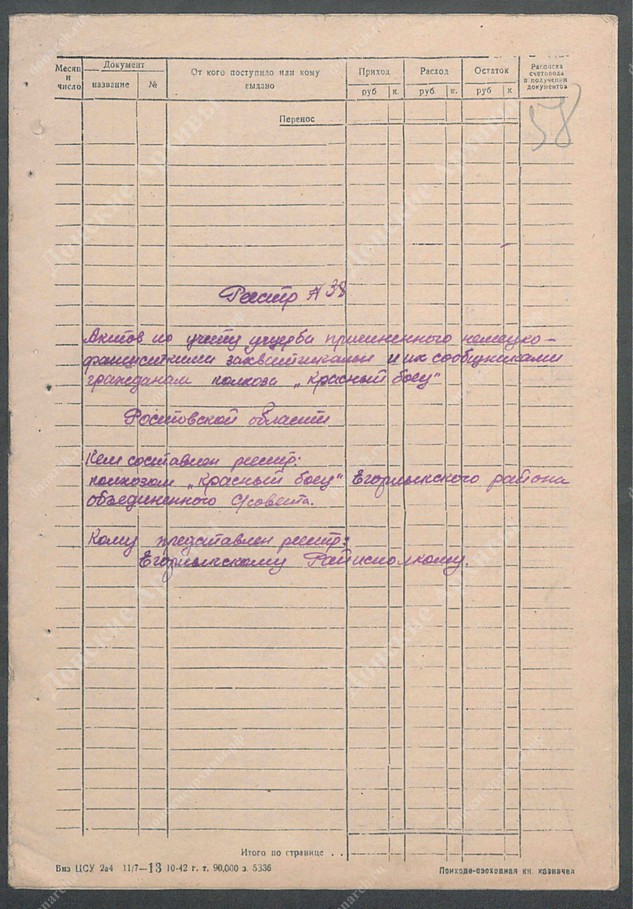 Месяц и число
Документ
название
№
От кого поступило или кому выдано
Приход
руб
к.
Расход
руб
к.
Остаток
руб
к
Расписка счетовода в получении документов
58
Перенос
Реестр № 38
Актов по учету ущерба причиненного немецко-
фашистскими захватчиками и их сообщниками
гражданам колхоза „Красный боец"
Ростовской области
Кем составлен реестр:
колхозом „Красный боец" Егорлыкского района
объединенного с/совета.
Кому представлен реестр:
Егорлыкскому Райисполкому.
Итого по странице . .
Виз ЦСУ 2а4 11/7—13 10-42 г. т. 90,000 з. 5336
Приходо-расходная кн. казначея
Донские Архивы